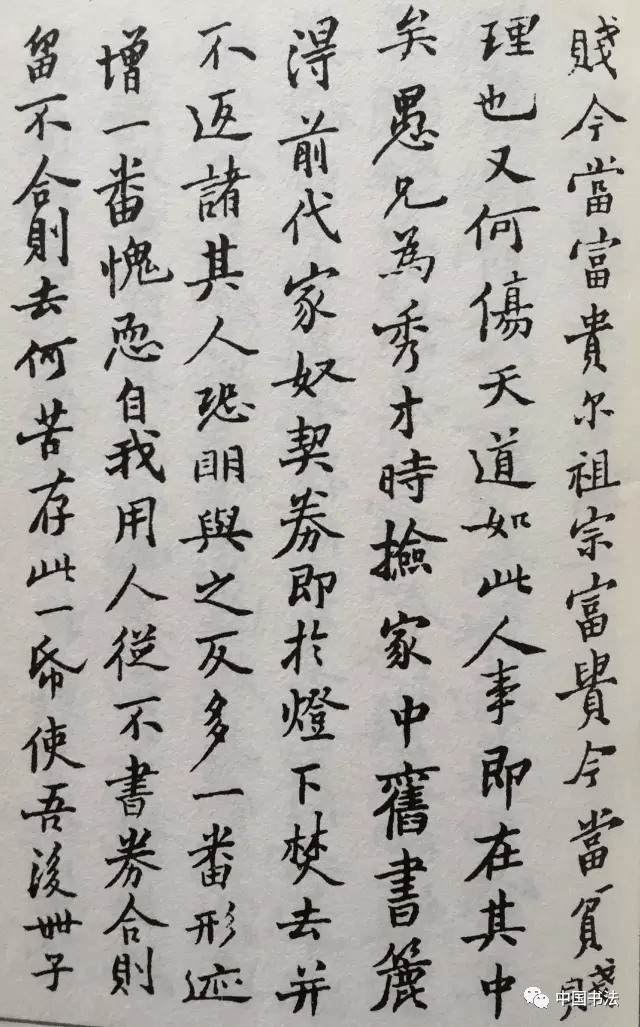 賤今當富貴尔祖宗富貴今當貧賤
理也又何傷天道如此人事即在其中
矣愚兄為秀才時撿家中舊書簏
得前代家奴契券即於燈下焚去并
不返諸其人恐明與之反多一番形迹
增一番愧恧自我用人從不書券合則
留不合則去何苦存此一帋使吾後世子
中国书法